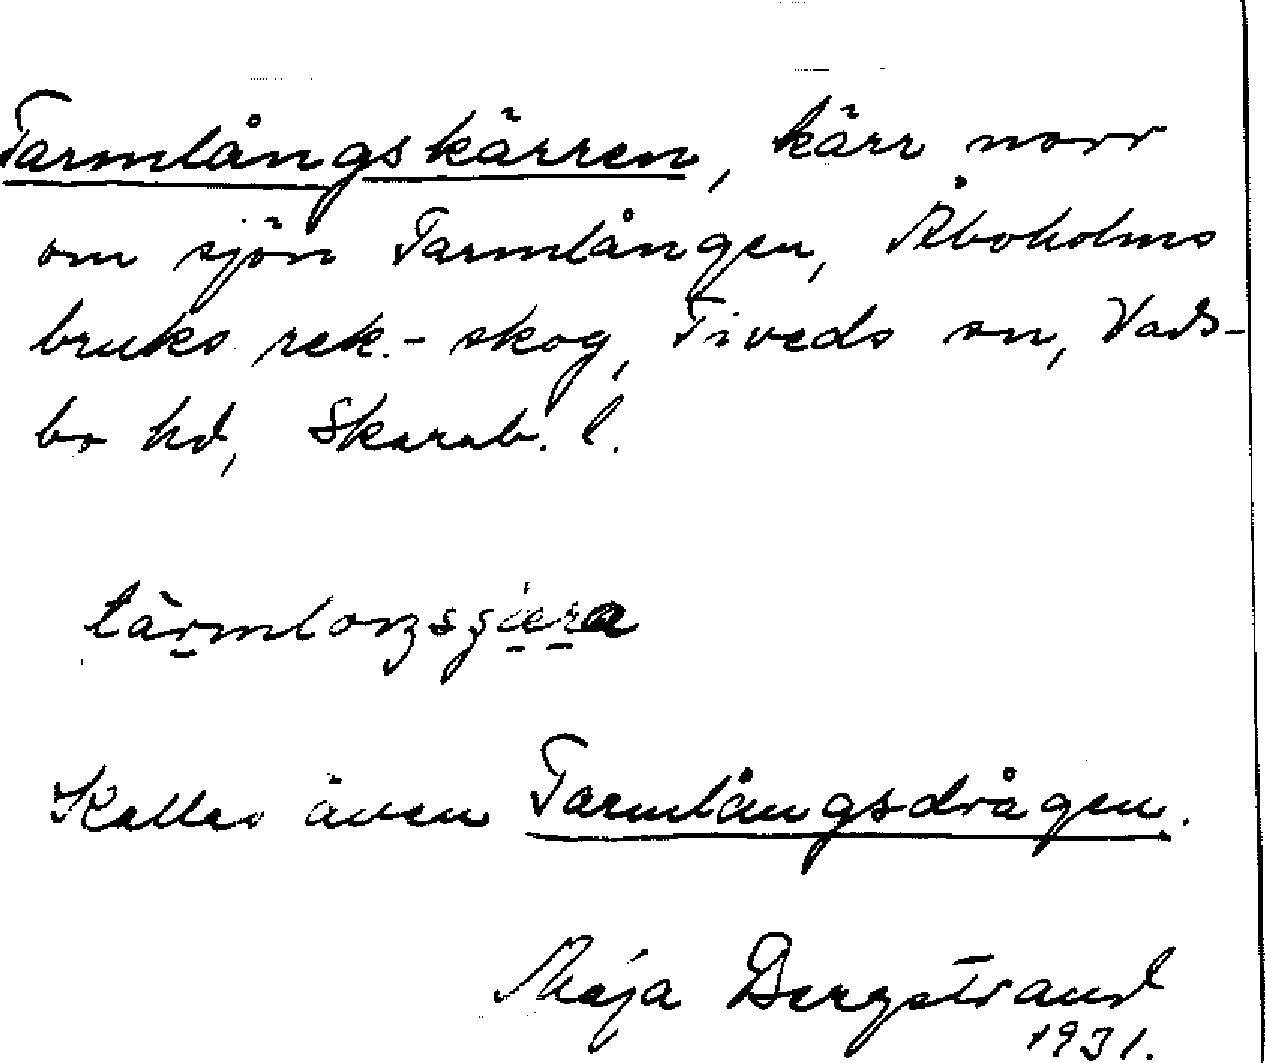 Tarmlångskärren, kärr norr
om sjön Tarmlången, Åboholms
bruks rek.- skog, Tiveds sn, Vads-
bo hd, Skarab. l.
Kallas även Tarmlångsdrågen.
Maja Bergstrand
1931.